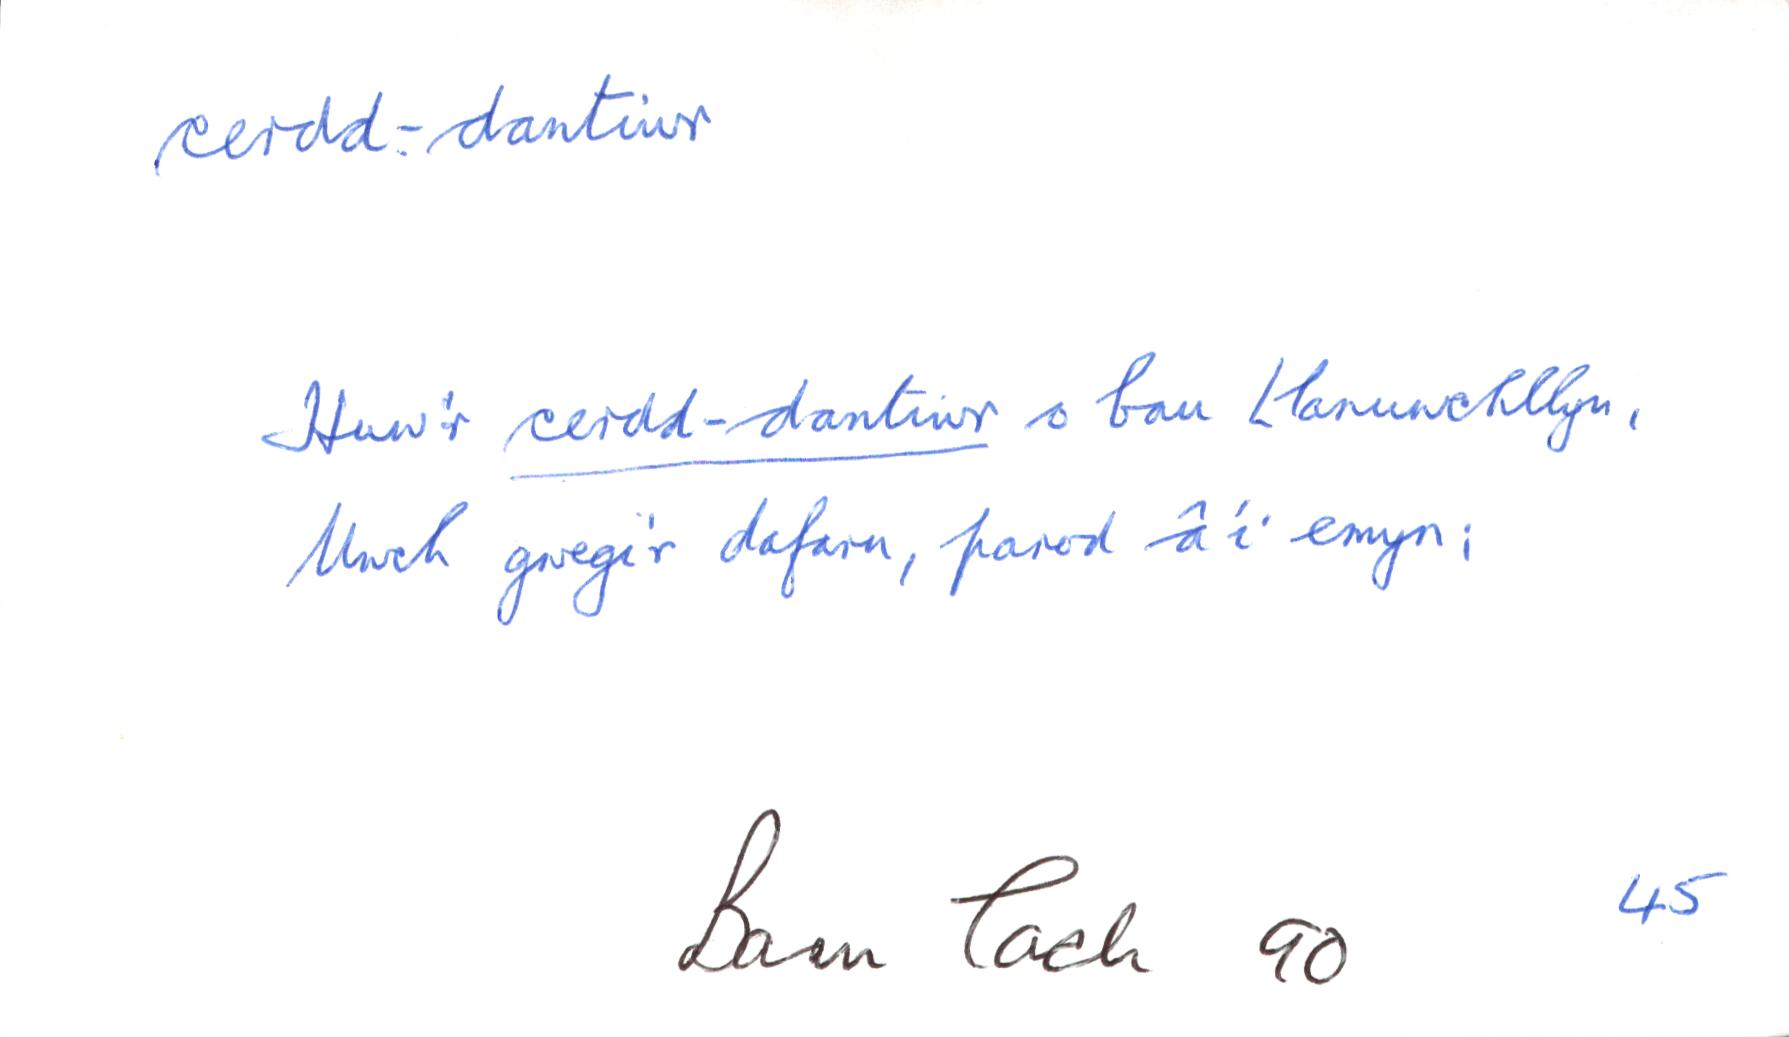 cerdd-dantiwr
Huw'r cerdd-dantiwr o bau Llanuwchllyn,
Uwch gwegi'r dafarn, parod â'i emyn;
Barn Tach 90
45